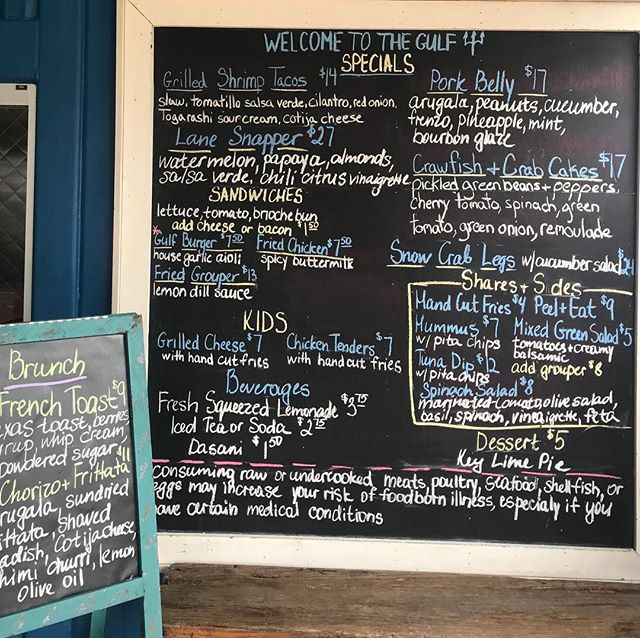 WELCOME TO THE GULF
SPECIALS
Grilled Shrimp Tacos $14
slaw, tomatillo salsa verde, cilantro, red onion,
Togarashi sour cream, cotija cheese
Lane Snapper $27
watermelon, papaya, almonds,
salsa verde, chili citrus vinaigrette
SANDWICHES
lettuce, tomato, brioche bun
add cheese or bacon $1 50
*Gulf Burger $7 50
house garlic aioli
Fried Chicken $7 50
spicy buttermilk
Fried Grouper $13
lemon dill sauce
KIDS
Grilled Cheese $7
with hand cut fries
Chicken Tenders $7
with hand cut fries
Beverages
Fresh Squeezed Lemonade $3 75
Iced Tea or Soda $2 75
Dasani $1 50
Pork Belly $17
arugala, peanuts, cucumber,
fresno, pineapple, mint,
bourbon glaze
Crawfish + Crab Cakes $17
pickled green beans + peppers,
cherry tomato, spinach, green
tomato, green onion, remoulade
Snow Crab Legs w/cucumber salad $24
Shares + Sides
Hand Cut Fries $4 Peel + Eat $9
Hummus $7
w/ pita chips
Mixed Green Salad $5
tomatoes + creamy
balsamic
Tuna Dip $12
w/ pita chips
add grouper $8
Spinach Salad $8
marinated tomato, olive salad,
basil, spinach, vinegaigrette, feta
Dessert $5
Key Lime Pie
consuming raw or undercooked meats, poultry, seafood, shellfish, or
eggs may increase your risk of foodborn illness, especialy if you
have certain medical conditions
Brunch
French Toast $9
exas toast, berries
yrup whip cream,
powdered sugar
Chorizo + Frittata $11
rugala, sundried
ittata, shaved
adish, cotija cheese,
himi churri, lemon
olive oil